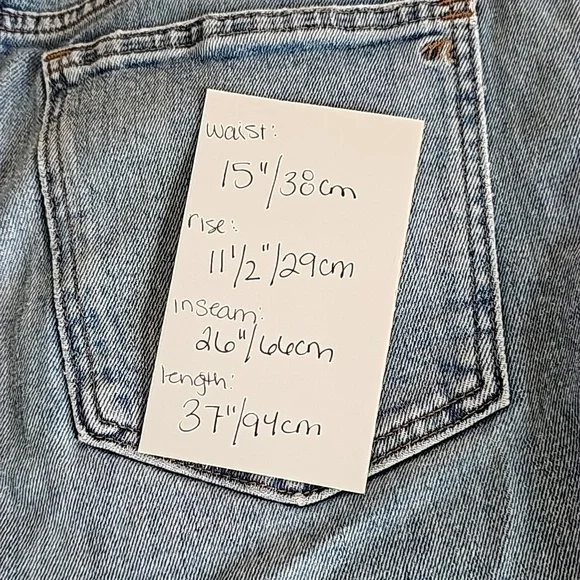 waist:
15"/38cm
rise:
11 1/2"/29cm
inseam:
26"/66cm
length:
37"/94cm